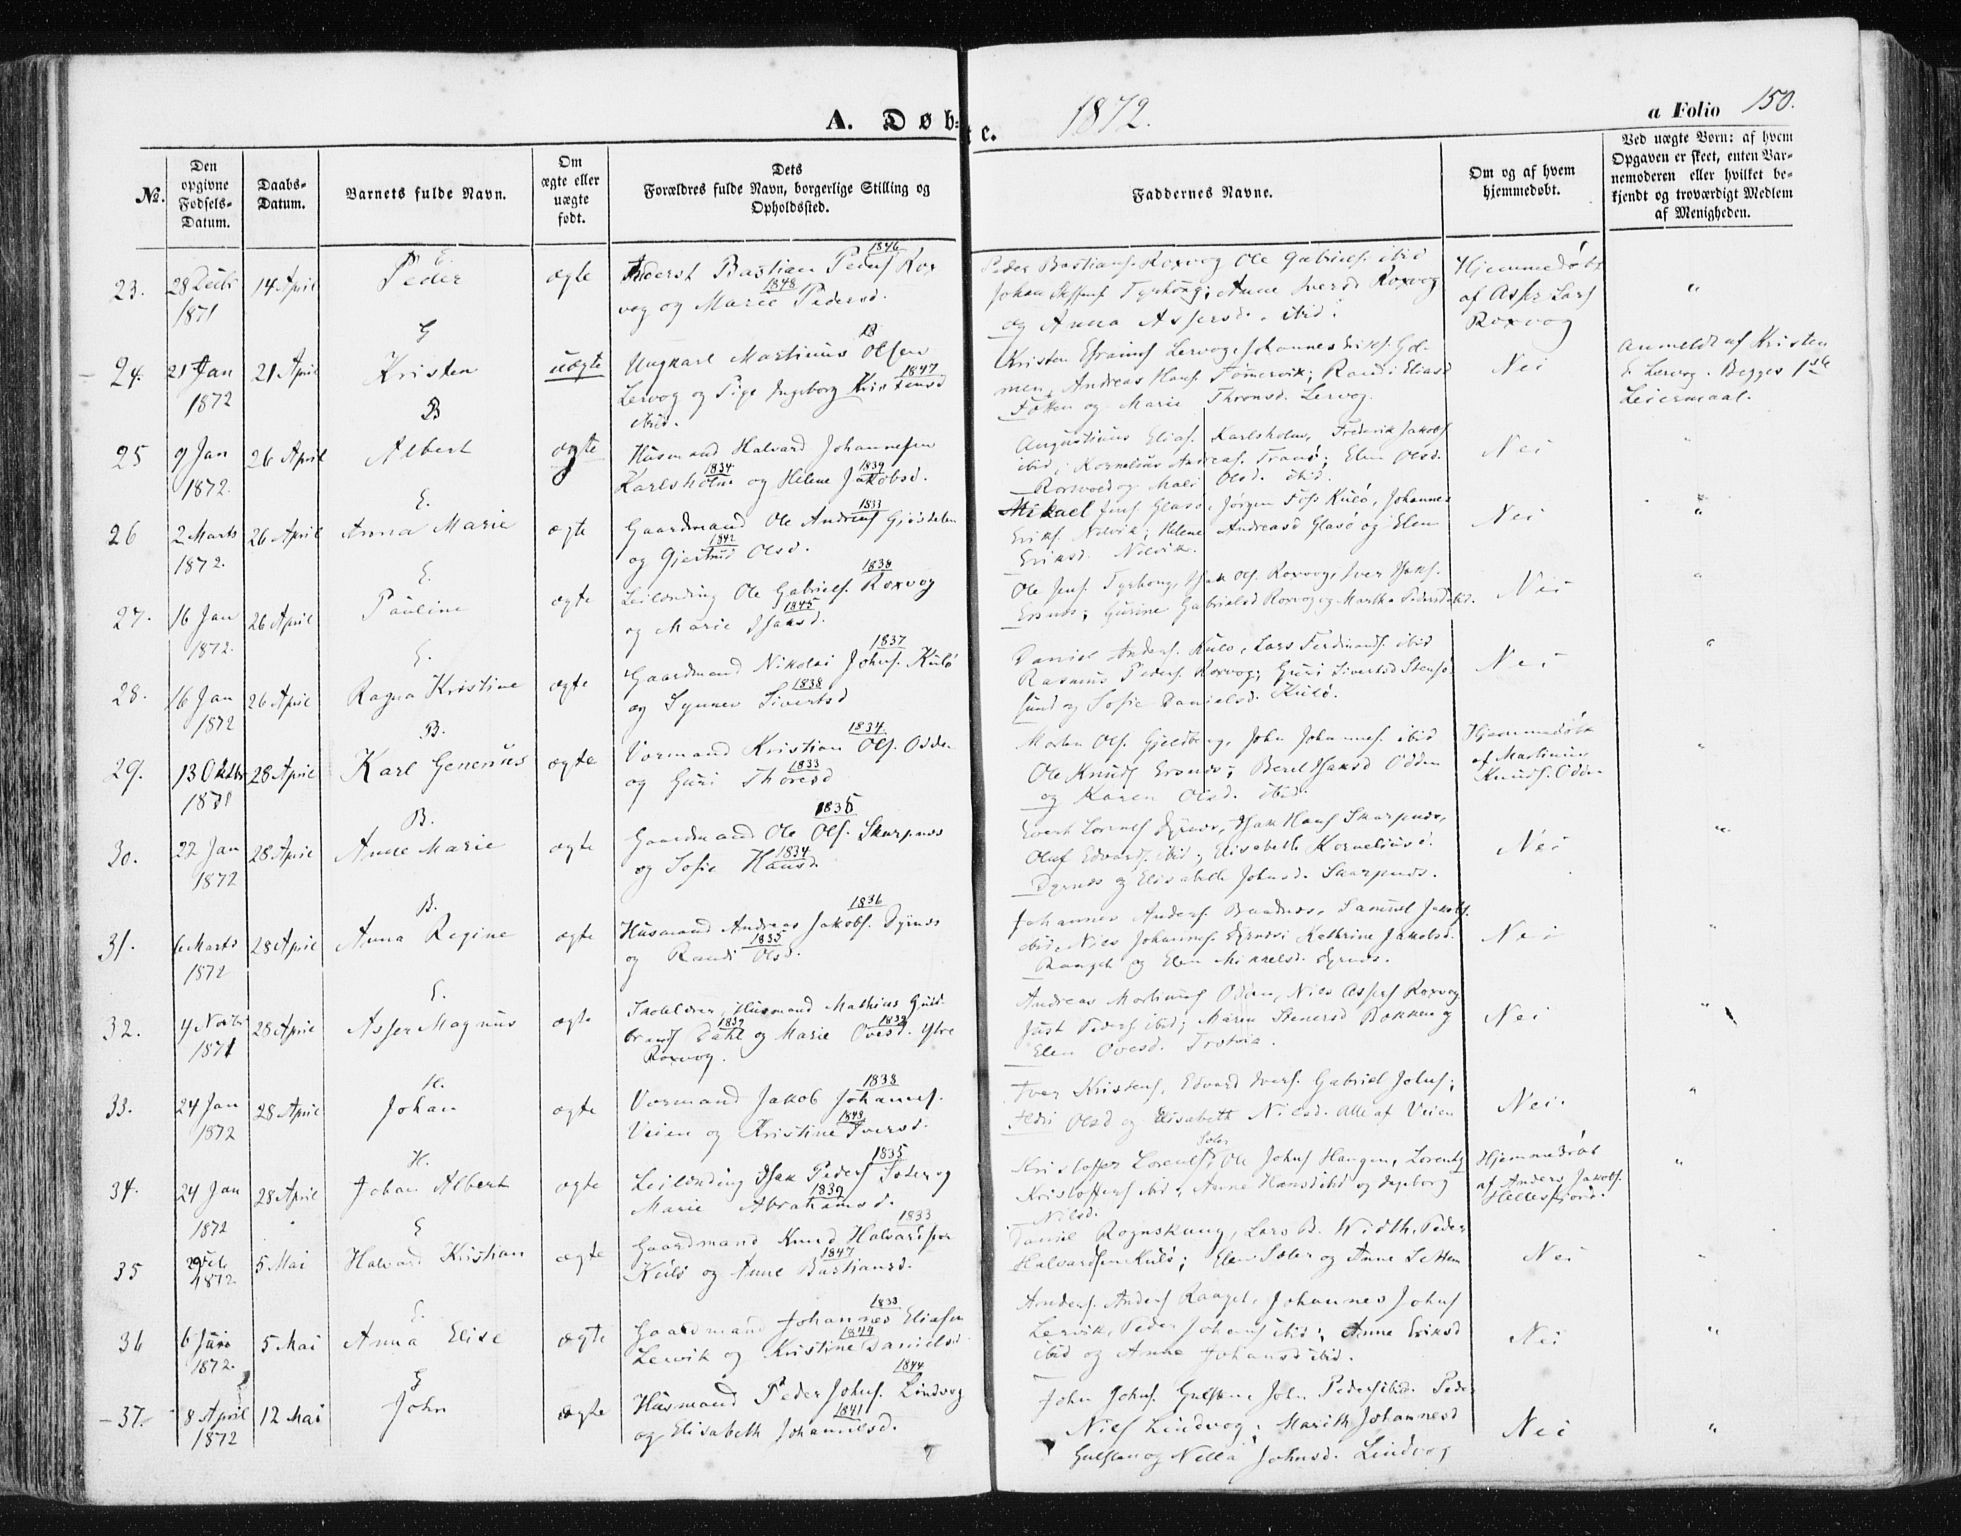 A. Døb-
te.
1872.
a Folio 150.
No.
Den opgivne Fødsels-Datum.
Daabs-Datum.
Barnets fulde Navn.
Om ægte eller uægte født.
Dets Forældres fulde Navn, borgerlige Stilling og Opholdssted.
Faddernes Navne.
Om og af hvem hjemmedøbt.
Ved uægte Børn: af hvem Opgaven er skeet, enten Barnemoderen eller hvilket bekjendt og troværdigt Medlem af Menigheden.
23.
28 Decbr
1871
14 April
Peder
ægte
1846
Bastian Peders Rox
vog og Marie Pedersd.
1848
Peder Bastians. Roxvog Ole Gabriels. ibid
Johan Tyrhoug; Anne Iversd Roxvog
og Anna Assersd. ibid.
Hjemmedøbt
af Asser Lars
Roxvog
"
24.
21 Jan
1872
21 April
G
Kristen
uægte
B
Ungkarl Martinus Olsen
Lervog og Pige Ingeborg Kristensd
1847
ibid.
Kristen Efraims Lervog, Johannes Eriks. Gol-
men, Andreas Hans Tømervik; Randi Eliasd
Fætten og Marie Thronsd. Lervog.
Nei
Anmeldt af Kristen
E Lervog. Begges 1ste
Leiermaal.
25
9 Jan
1872.
26 April
B
Albert
ægte
Husmand Halvard Johannesen
Karlsholm og Helene Jakobsd.
1834
1839
Augustinus Elias. Karlsholm, Frederik Jakobs
ibid; Kornelius Andreas. Tranø; Elen Olsd.
og Mali Olsd. ibid.
Nei
"
26
2 Marts
1872.
26 April
E.
Anna Marie
ægte
1833
Gaardmand Ole Andreas
og Gjertrud Olsd.
1842
Mikael Jens Glasø, Jørgen Foss Kulø, Johannes
Eriks Nelvik; Helene Andreasd Glasø og Elen
Eriksd. Nelvik.
Nei
"
27.
16 Jan
1872.
26 April
E.
Pauline
ægte
1838
Leilænding Ole Gabriels. Roxvog
og Marie Isaksd.
1845
Ole Jens Tyrhoug, Isak Ols. Roxvog, Iver Isaks.
Ersnes; Gurine Gabrielsd Roxvog og Martha Pedersd ibid.
Nei
"
28.
16 Jan
1872
26 April
E.
Ragna Kristine
ægte
1837
Gaardmand Nikolai Johns. Kulø
og Synnev Sivertsd
1838
Daniel Anders. Kulø, Lars Ferdinands. ibid
Rasmus Peders. Roxvog; Guri Sivertsd Stensø
sund og Sofie Danielsd. Kulø.
Nei
"
29.
13 Oktbr
1871
28 April
B.
Karl Generius
ægte
1834
Vormand Kristian Ols. Odden
og Guri Thoresd
1833
Morten Ols. Gjeldberg, John Johannes. ibid
Ole Knuds Ersnes; Beret Isaksd Odden
og Karen Olsd. ibid.
Hjemmedøbt
af Martinus
Knuds. Odden
"
30.
22 Jan
1872
28 April
B.
Anne Marie
ægte
1835
Gaardmand Ole Ols. Skarpnes
og Sofie Hansd.
1834
Evert Lorents Dyrnes, Isak Hans Skarpnes,
Oluf Edvards. ibid; Elisabeth Korneliusd.
Dyrnes og Elisabeth Johnsd. Skarpnes.
Nei
"
31.
6 Marts
1872
28 April
B.
Anna Regine
ægte
1836
Husmand Andreas Jakobs. Dyrnes
og Randi Olsd.
1835
Johannes Anders. Bradnes, Samuel Jakobs.
ibid, Niels Johannes. Dyrnes; Kathrine Jakobsd.
og Elen Mikkelsd. Dyrnes.
Nei
"
32.
4 Novbr
1871
28 April
E.
Asser Magnus
ægte
Skolelærer, Husmand Mathias Guld-
brands Dahl og Marie Ovesd. Ytre
1839
1839
Roxvog.
Andreas Martinus Odden, Niels Assers Roxvog
Just Peders ibid; Maren Stenersd Bakken og
Elen Ovesd.
Nei
"
33.
24 Jan
1872
28 April
H.
Johan
ægte
1838
Vormand Jakob Johannes.
Veien og Kristine Iversd.
1843
Iver Kristens, Edvard Ivers. Gabriel Johns;
Olsd og Elisabeth Nielsd. Alle af Veien
Nei.
"
34.
24 Jan
1872
28 April
H.
Johan Albert
ægte
1835
Leilænding Isak Peders Soler og
Marie Abrahamsd.
1839
Soler
Kristoffer Lorents, Ole Johns Haugen, Lorents
Kristoffers ibid; Anne Hansd ibid og Ingeborg
Nilsd.
Hjemmedøbt
af Anders Jakobs.
Hellesfjord.
"
35
29 Feb.
1872.
5 Mai
E
Halvard Kristian
ægte
1833
Gaardmand Knud Halvardsen
Kulø og Anne Bastiansd.
1847
Daniel Rognskaug, Lars B. Width, Peder
Halvardsen Kulø; Elen Soler og Anne Setten
Nei
"
36
6 Jan
1872.
5 Mai
E.
Anna Elise
ægte
1833
Gaardmand Johannes Eliasen
Lervik og Kristine Danielsd
1844
Anders. Anders Raaget, Johannes Johns
Lervik, Peder Johans ibid; Anne Eriksd
ibid og Anne Johansd ibid.
Nei
"
37.
8 April
1872
12 Mai
G
John
ægte
1844
Husmand Peder Johns. Lindvog
og Elisabeth Johannesd.
1841
John Johns. Gulsten, John Peders ibid. Peder
Niels Lindvog; Marith Johannesd
Gulsten og Nella Johnsd. Lindvog
Nei
"